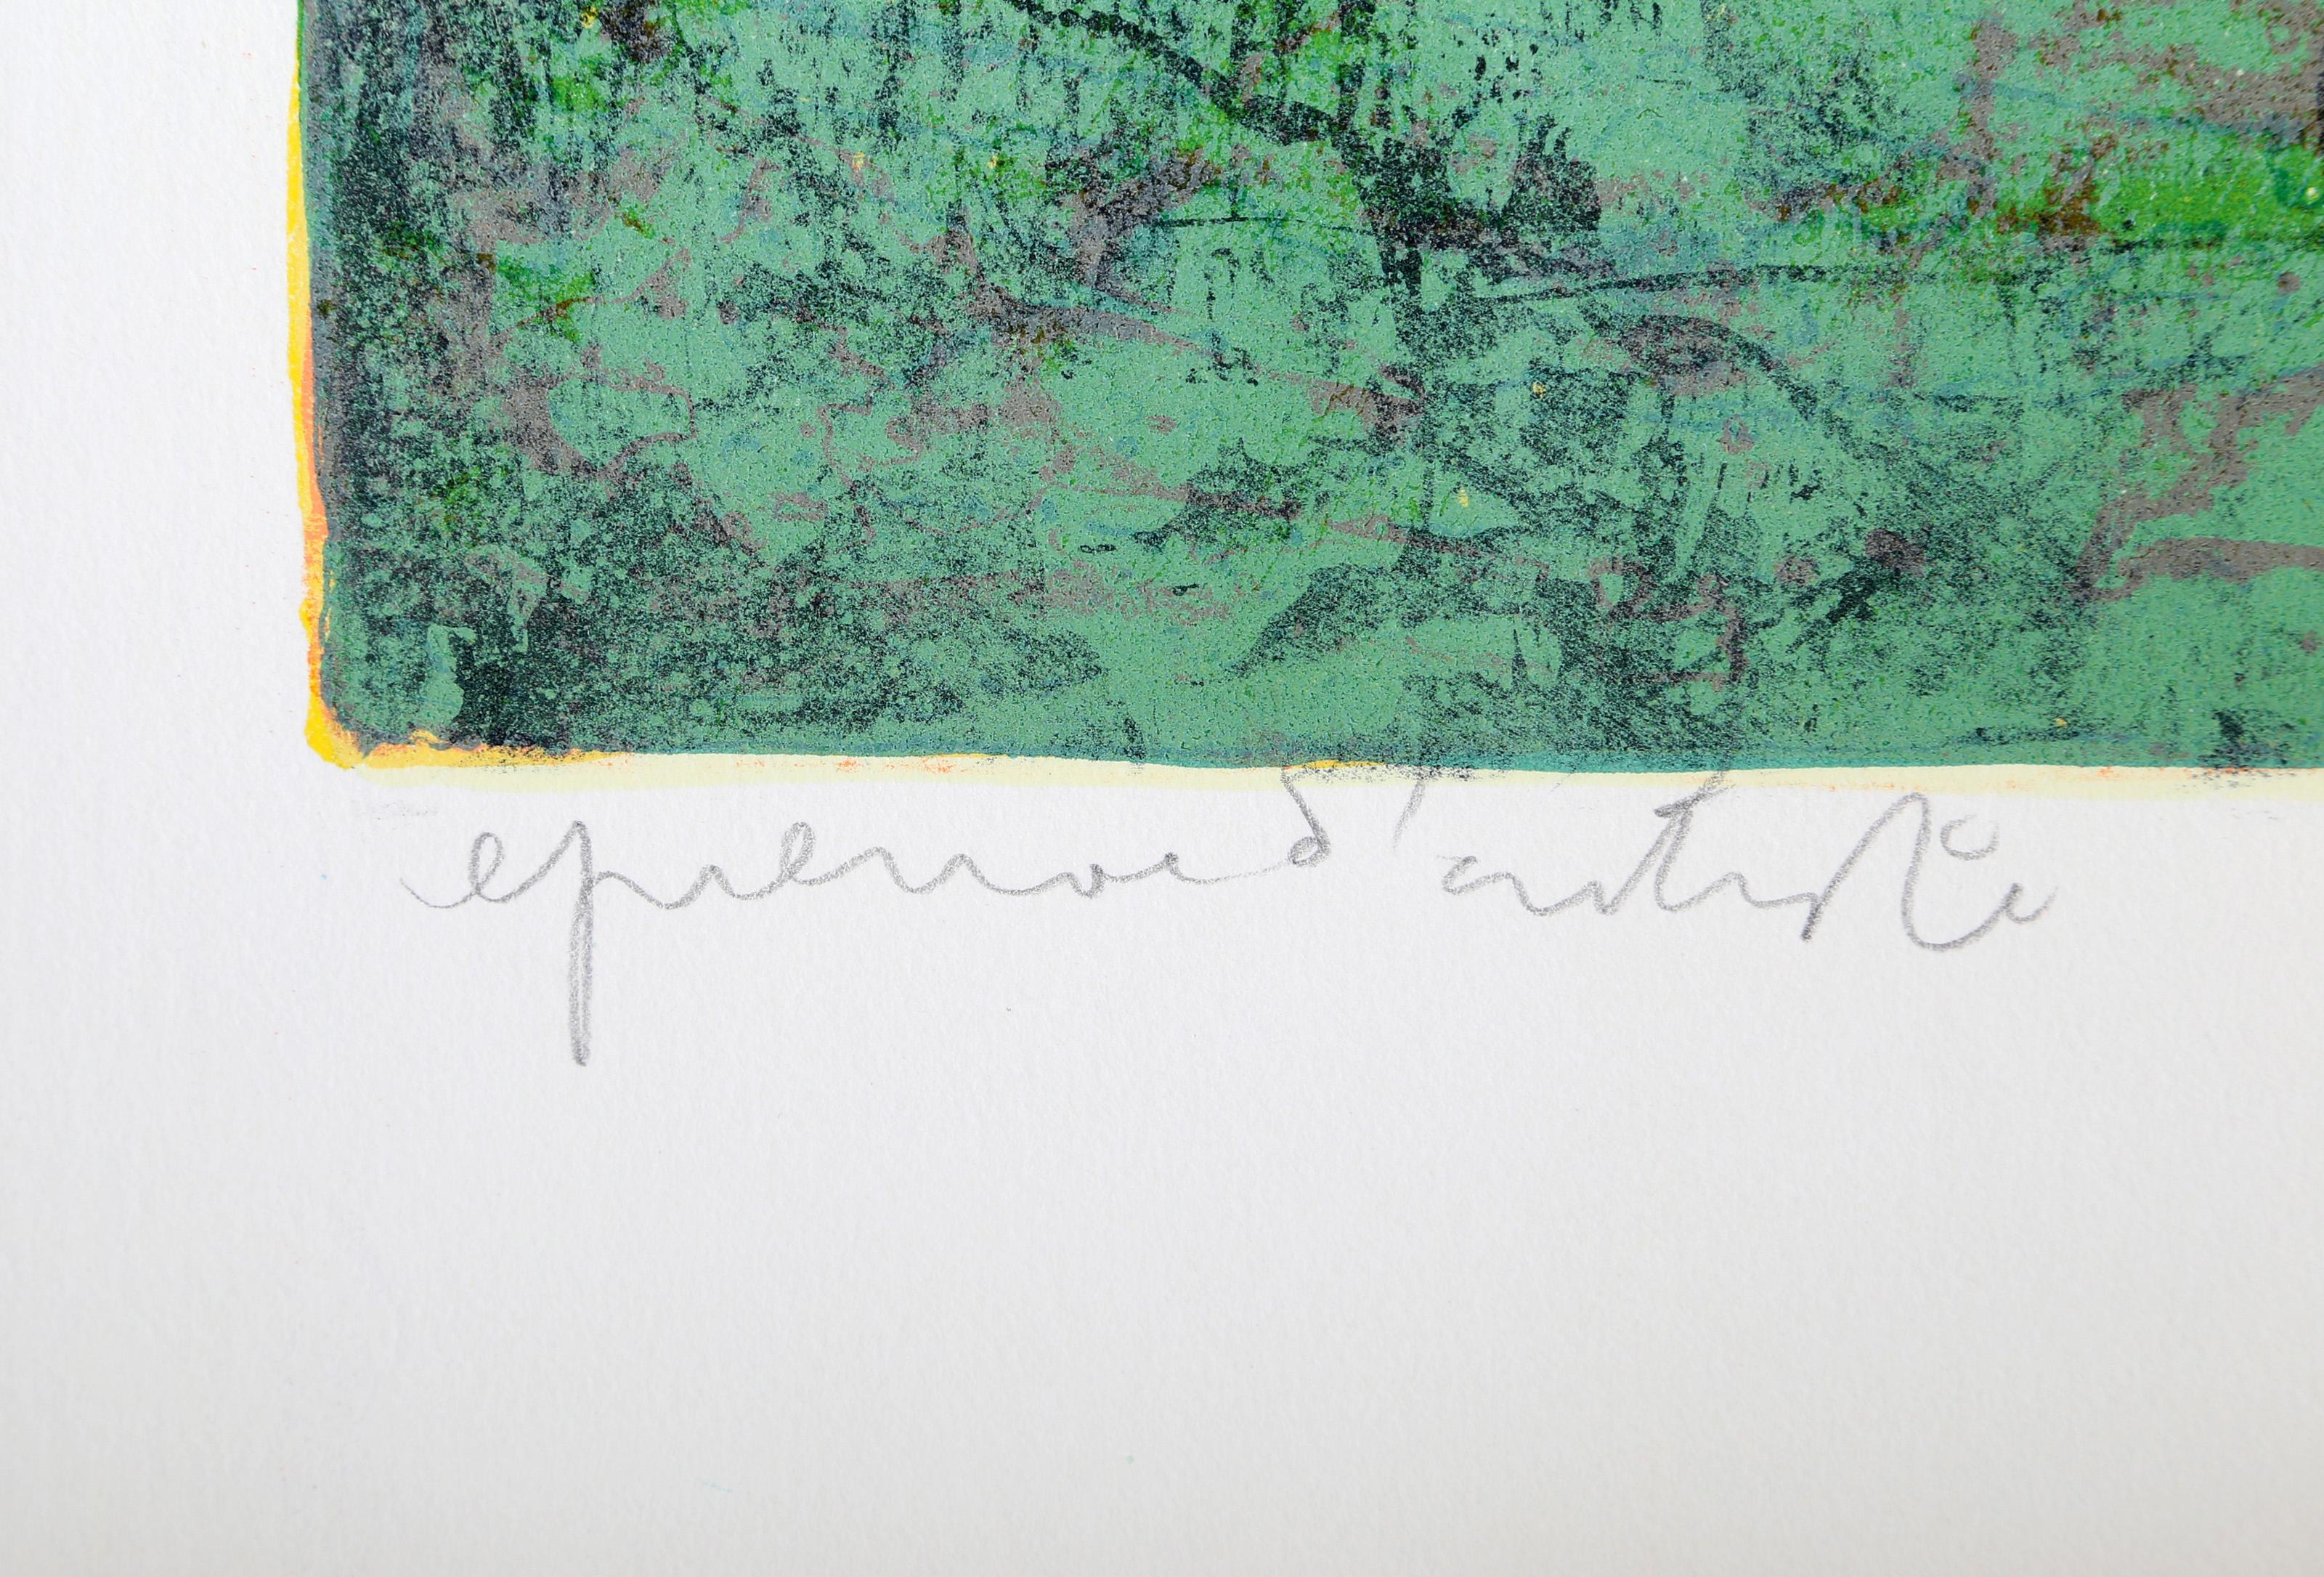 epreuve d'artiste